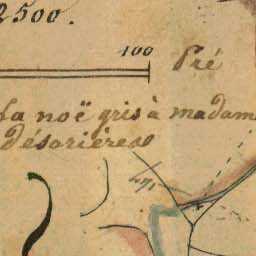 2500.
100
Pré
la noë gris à madam
désorières
471